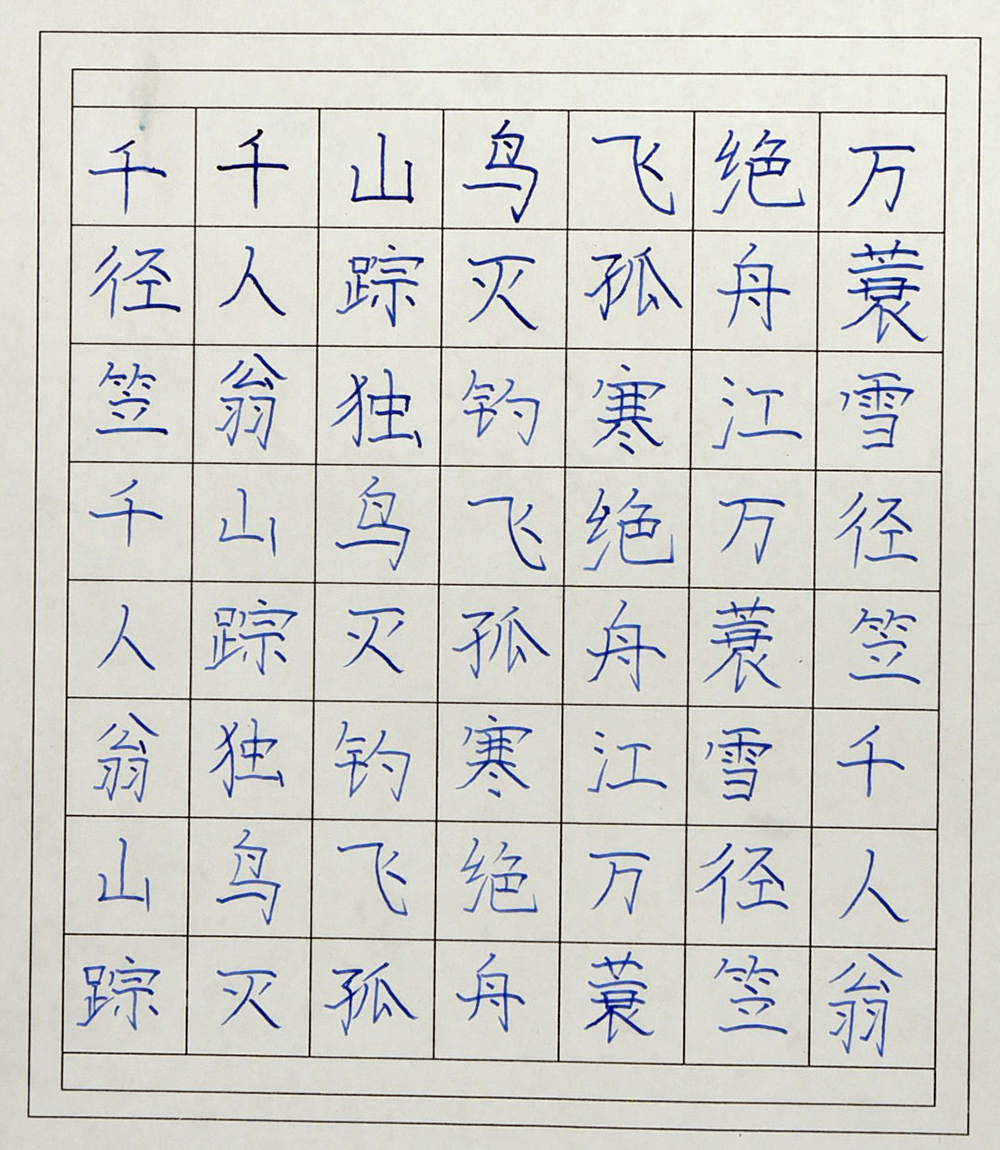 千千山鸟飞绝万
径人踪灭孤舟蓑
笠翁独钓寒江雪
千山鸟飞绝万径
人踪灭孤舟蓑笠
翁独钓寒江雪千
山鸟飞绝万径人
踪灭孤舟蓑笠翁